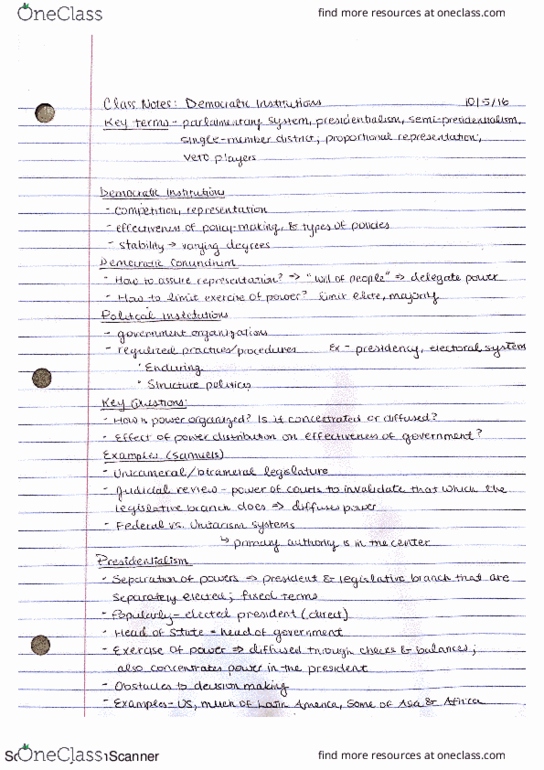 OneClass
find more resources at oneclass.com
Class Notes: Democratic Institutions 10/5/16
Key terms - parliamentary system, presidentialism, semi-presidentialism,
single-member district, proportional representation,
veto players
Democratic Institutions
- competition, representation
- effectiveness of policy-making, & types of policies
- stability → varying degrees
Democratic Conundrum
- How to assure representation? ⇒ "will of people" ⇒ delegate power
- How to limit exercise of power? limit elite, majority
Political Institutions
- government organizations
- regulized practices/procedures Ex - presidency, electoral system
· Enduring
· Structure politics
Key Questions:
- How is power organized? Is it concentrated or diffused?
- Effect of power distribution on effectiveness of government?
Examples (Samuels)
- Unicameral/bicameral legislature
- Judicial review - power of courts to invalidate that which the
legislative branch does ⇒ diffuses power
- Federal vs. Unitarism systems
↳ primary authority is in the center
Presidentialism
- Separation of powers ⇒ president & legislative branch that are
separately elected; fixed terms
- Popularly-elected president (direct)
- Head of State = head of government
- Exercise of power ⇒ diffused through checks & balances;
also concentrates power in the president
- Obstacles to decision making
- Examples - US, much of Latin America, some of Asia & Africa
OneClass
Scanner
find more resources at oneclass.com